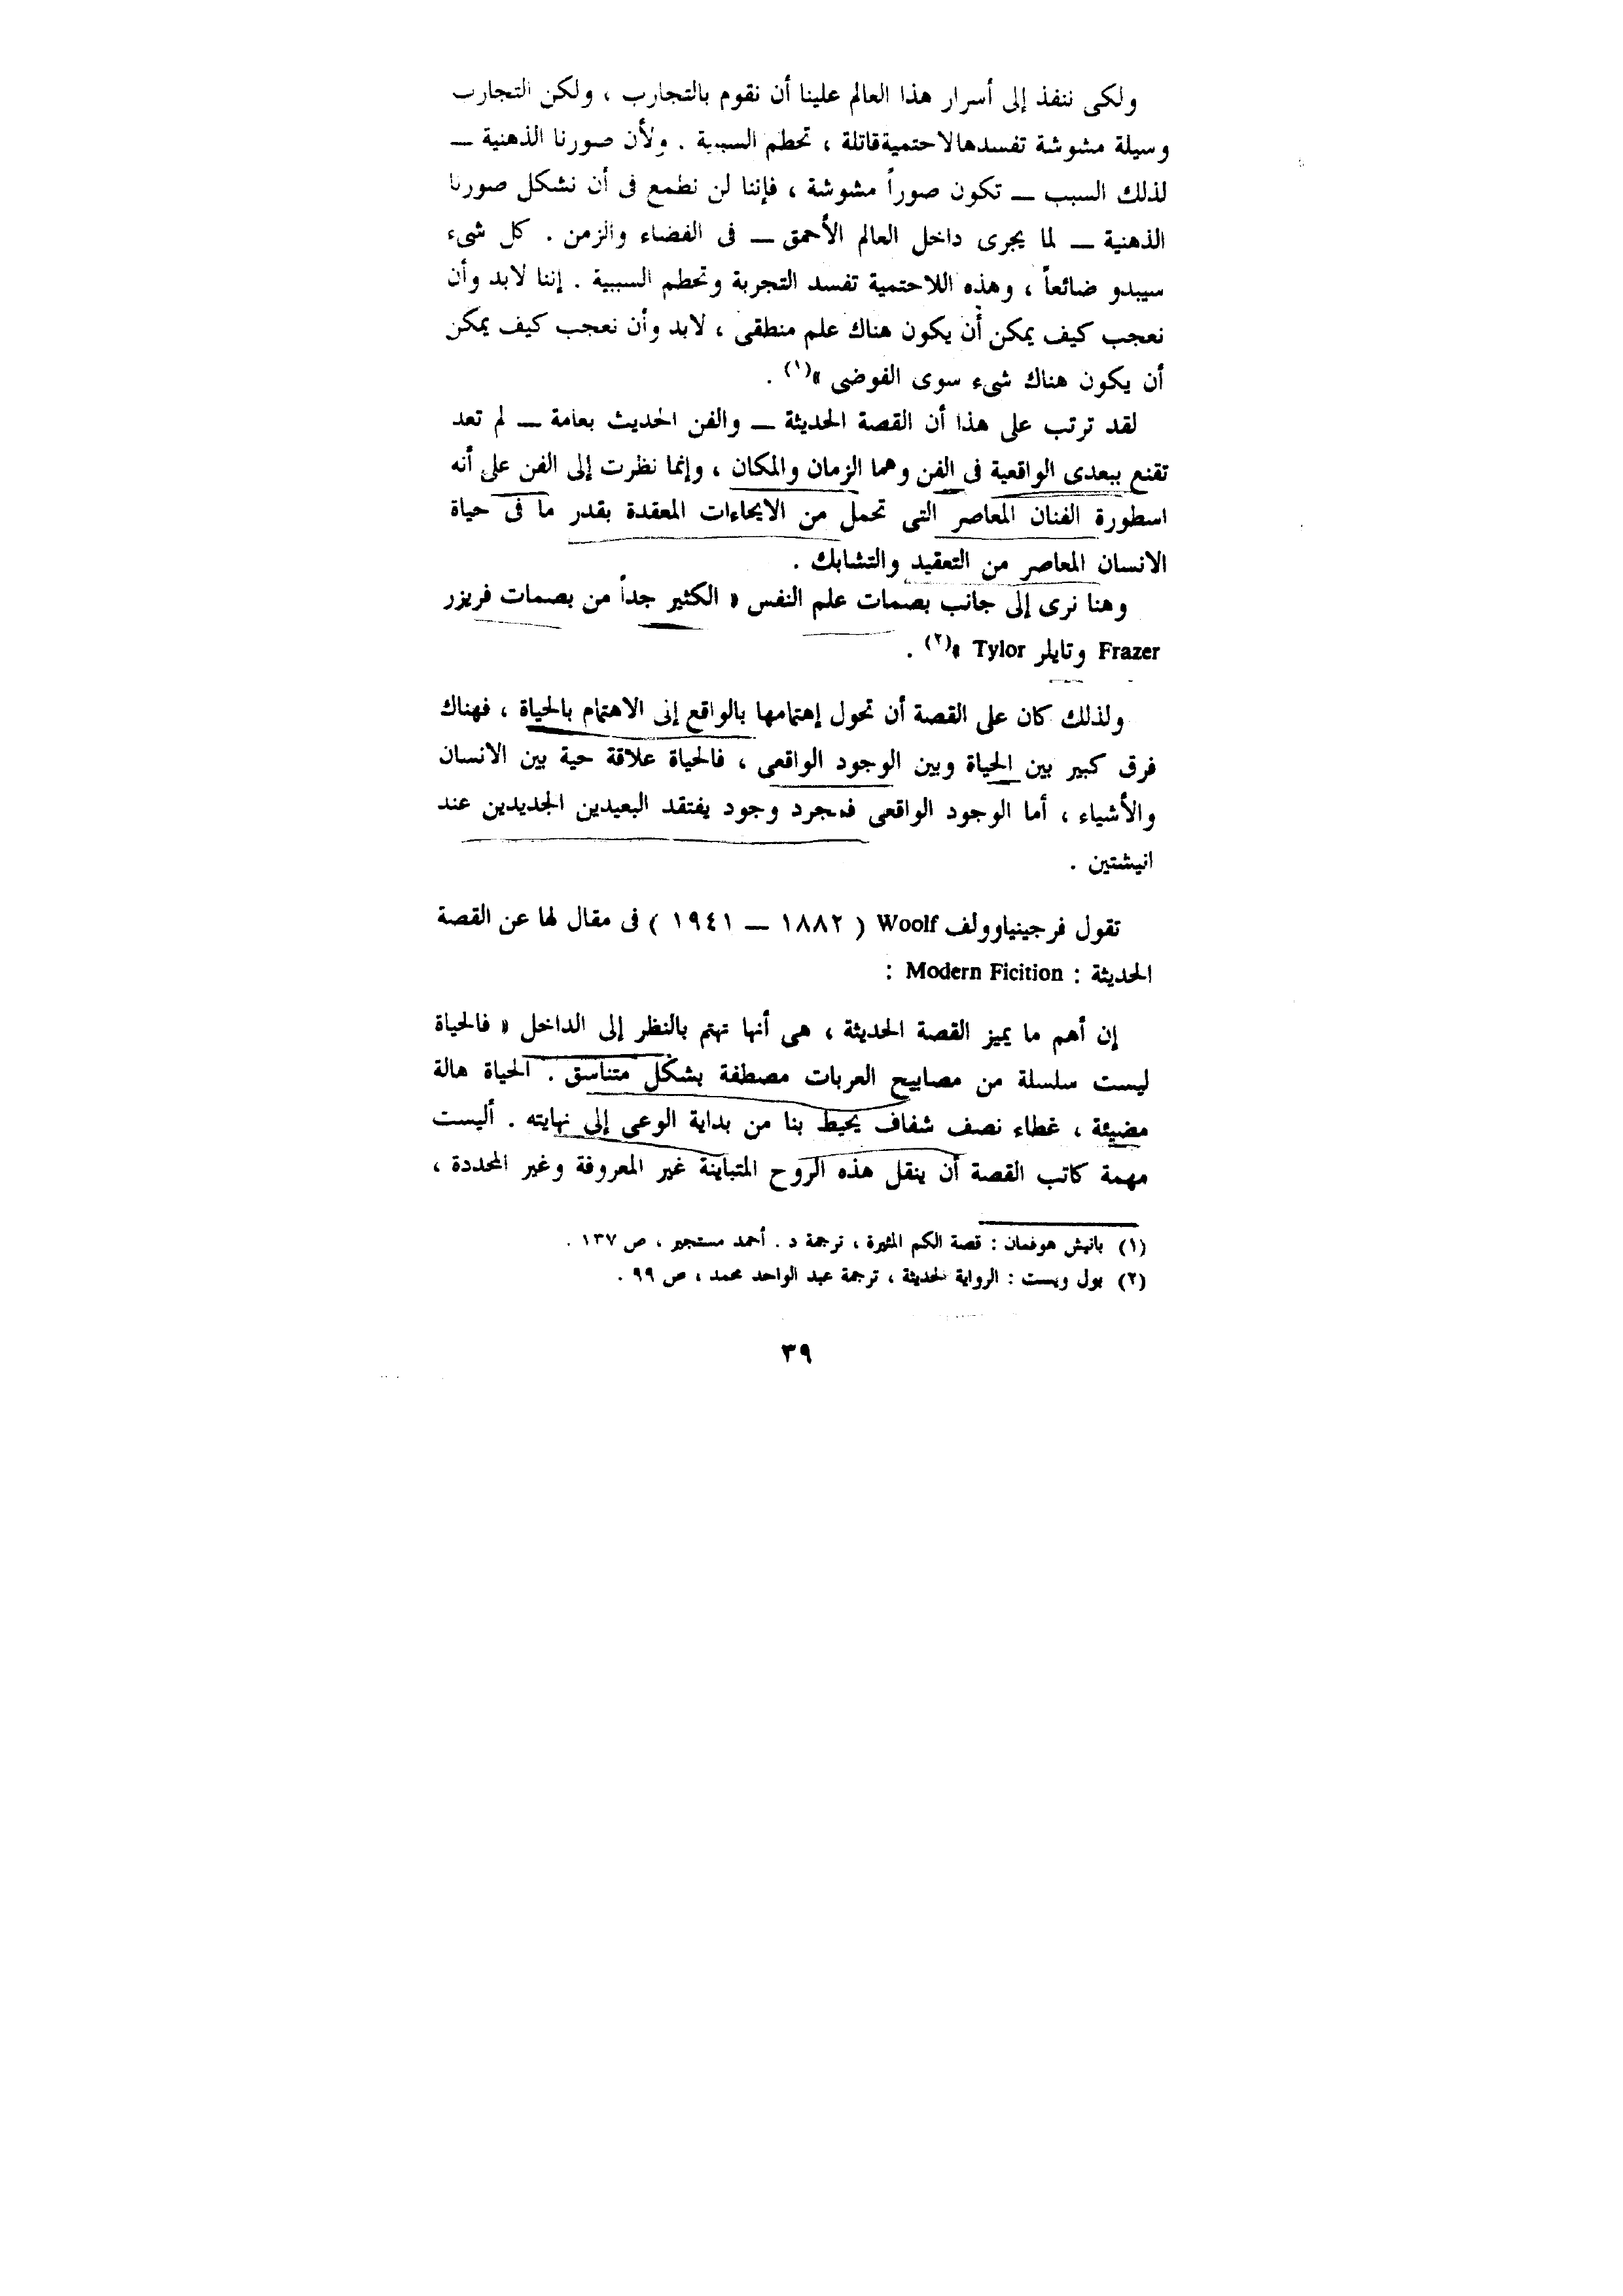 ولكى ننفذ إلى أسرار هذا العالم علينا أن نقوم بالتجارب ، ولكن التجارب
وسيلة مشوشة تفسدهالاحتميةقاتلة ، تحطم السببية . ولأن صورنا الذهنية —
لذلك السبب — تكون صوراً مشوشة ، فإننا لن نطمع فى أن نشكل صورنا
الذهنية — لما يجرى داخل العالم الأحمق — فى الفضاء والزمن . كل شىء
سيبدو ضائعاً ، وهذه اللاحتمية تفسد التجربة وتحطم السببية . إننا لابد وأن
نعجب كيف يمكن أن يكون هناك علم منطقى ، لابد وأن نعجب كيف يمكن
أن يكون هناك شىء سوى الفوضى »(١) .
لقد ترتب على هذا أن القصة الحديثة — والفن الحديث بعامة — لم تعد
تقنع ببعدى الواقعية فى الفن وهما الزمان والمكان ، وإنما نظرت إلى الفن على أنه
اسطورة الفنان المعاصر التى تحمل من الايحاءات المعقدة بقدر ما فى حياة
الانسان المعاصر من التعقيد والتشابك .
وهنا نرى إلى جانب بصمات علم النفس « الكثير جداً من بصمات فريزر
Frazer وتايلر Tylor »(٢) .
ولذلك كان على القصة أن تحول إهتمامها بالواقع إلى الاهتمام بالحياة ، فهناك
فرق كبير بين الحياة وبين الوجود الواقعى ، فالحياة علاقة حية بين الانسان
والأشياء ، أما الوجود الواقعى فمجرد وجود يفتقد البعيدين الجديدين عند
انيشتين .
تقول فرجينياوولف Woolf ( ١٨٨٢ — ١٩٤١ ) فى مقال لها عن القصة
الحديثة : Modern Ficition :
إن أهم ما يميز القصة الحديثة ، هى أنها تهتم بالنظر إلى الداخل « فالحياة
ليست سلسلة من مصابيح العربات مصطفة بشكل متناسق . الحياة هالة
مضيئة ، غطاء نصف شفاف يحيط بنا من بداية الوعى إلى نهايته . أليست
مهمة كاتب القصة أن ينقل هذه الروح المتباينة غير المعروفة وغير المحددة ،
(١) بانيش هوفمان : قصة الكم المثيرة ، ترجمة د . أحمد مستجير ، ص ١٣٧ .
(٢) بول ويست : الرواية الحديثة ، ترجمة عبد الواحد محمد ، ص ٩٩ .
٣٩